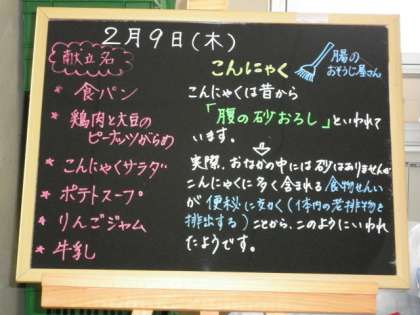 2月9日(木)
献立名
* 食パン
* 鶏肉と大豆の
ピーナッツがらめ
* こんにゃくサラダ
* ポテトスープ
* りんごジャム
* 牛乳
こんにゃく
腸の
おそうじ屋さん
こんにゃくは昔から
「腹の砂おろし」といわれて
います。
実際、おなかの中には砂はありませんが
こんにゃくに多く含まれる食物せんい
が便秘に効く(体内の老排物を
排出する)ことから、このようにいわれ
たようです。